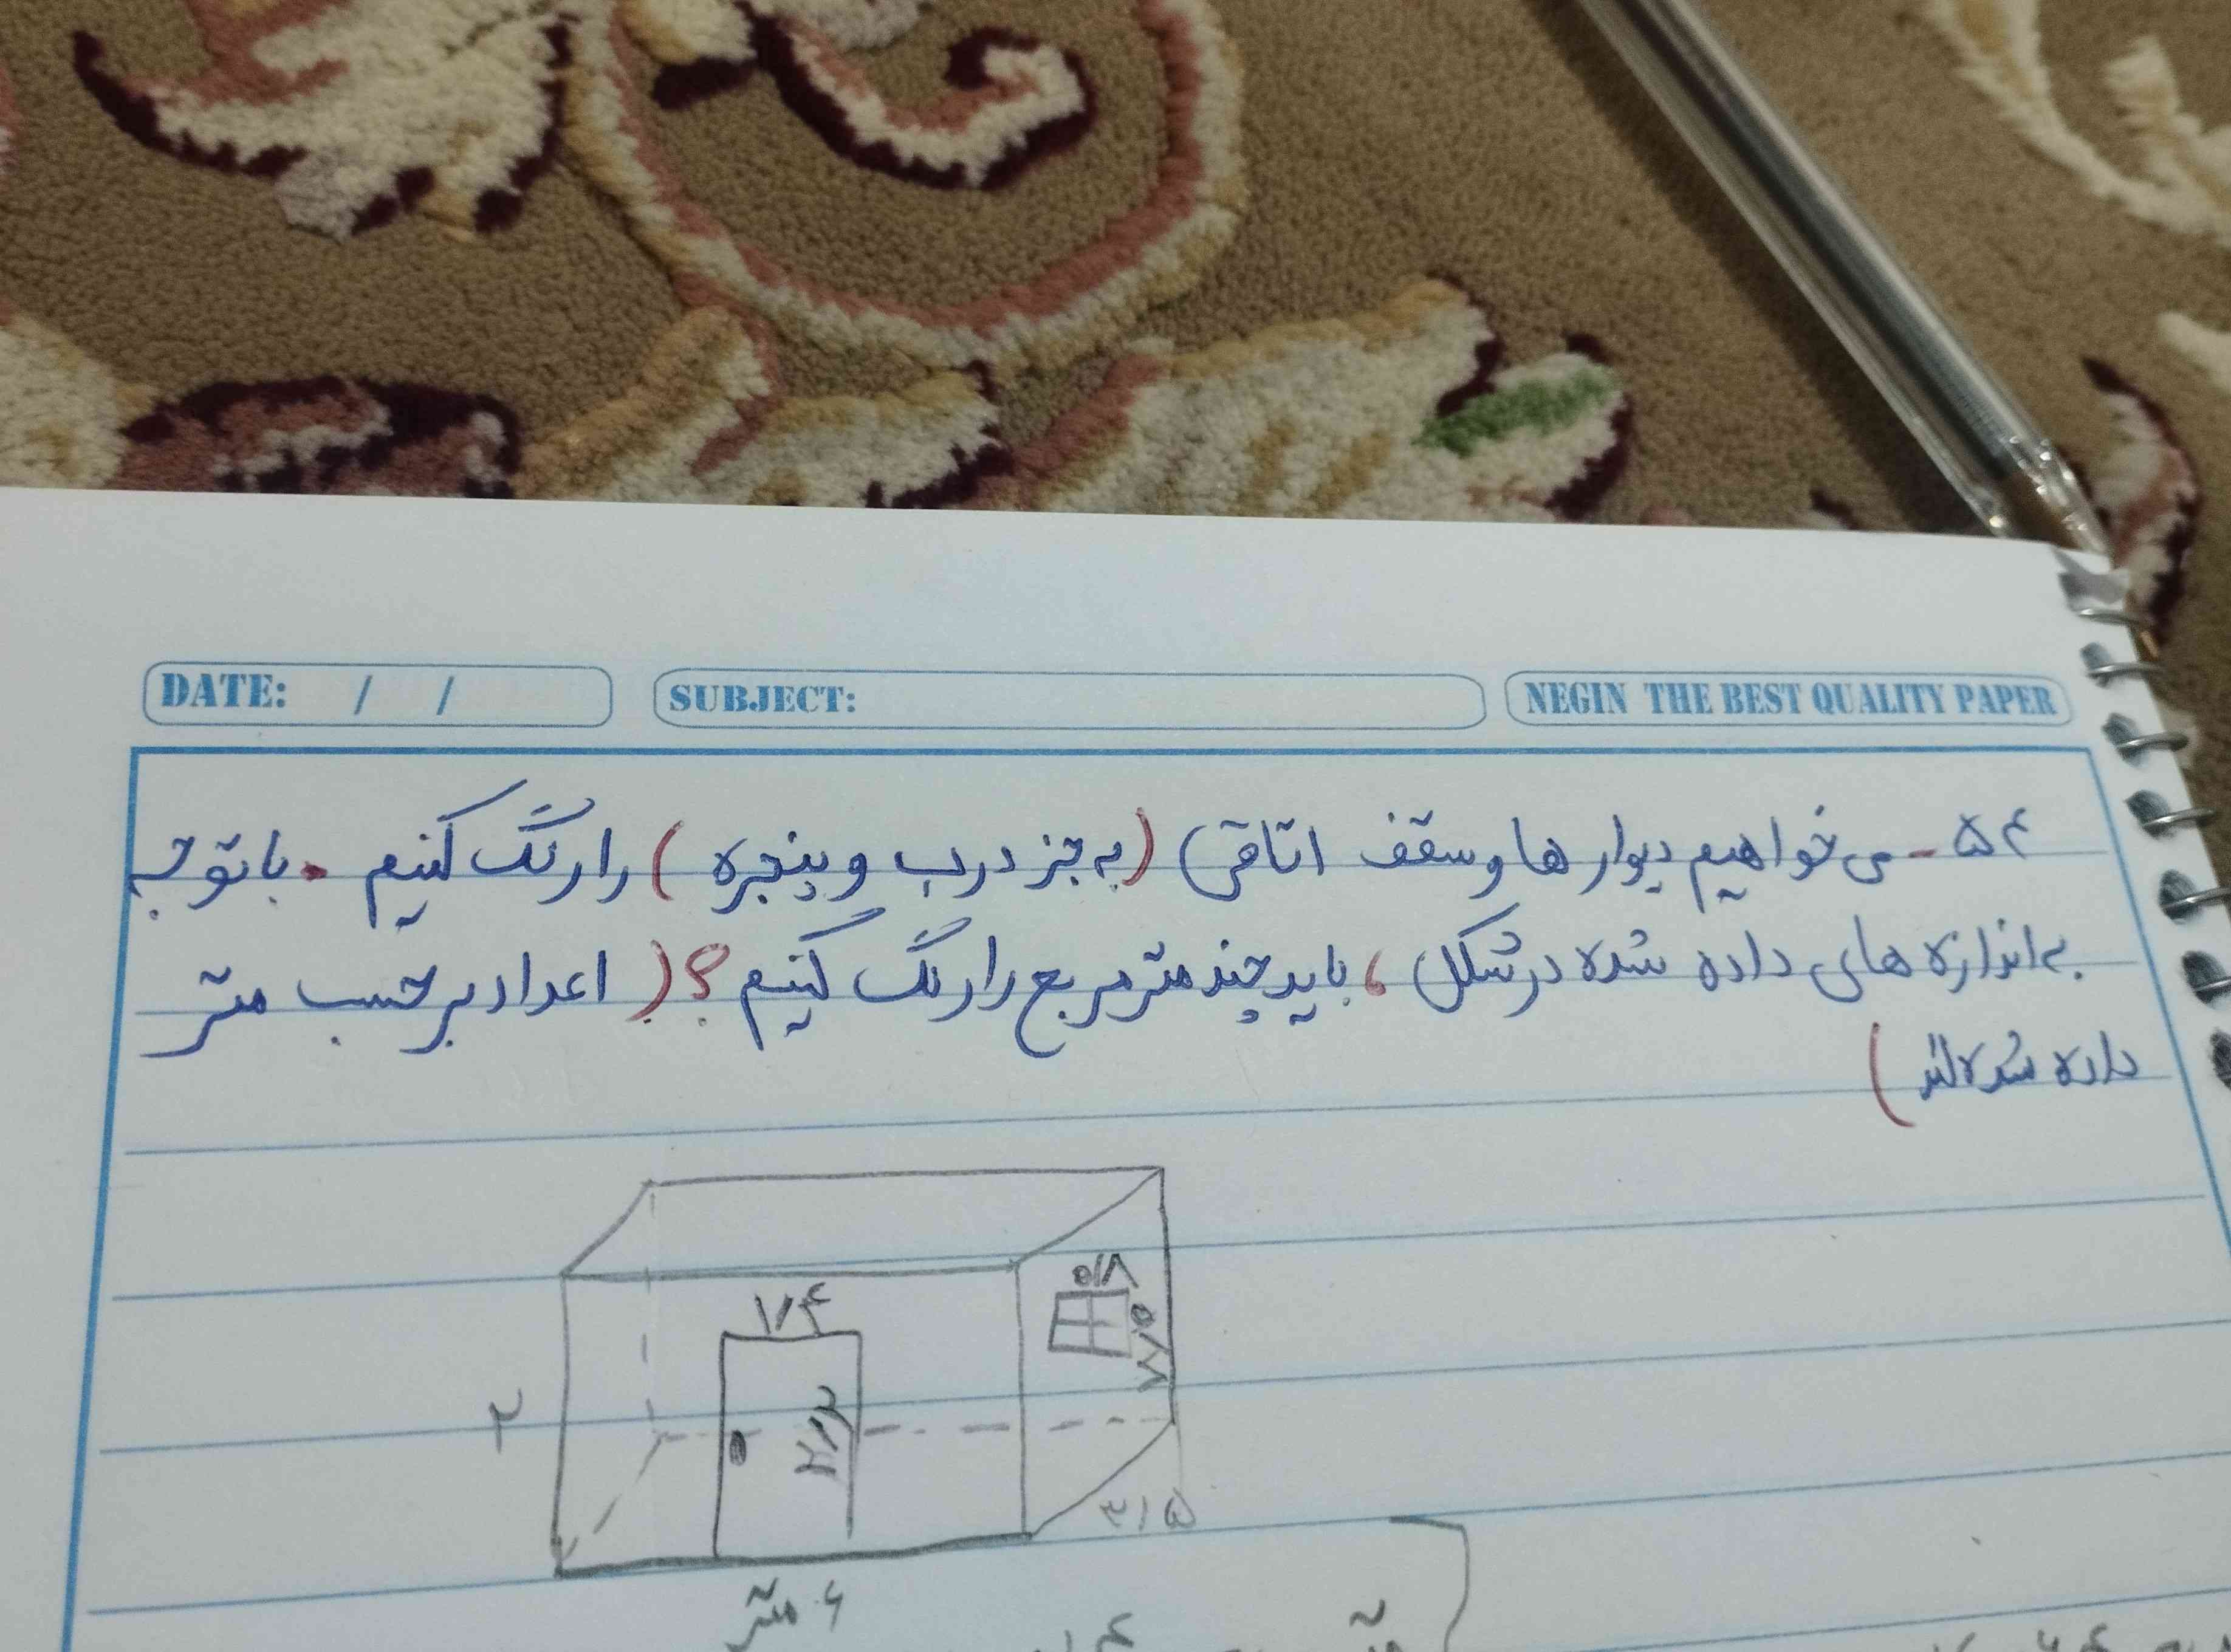 DATE: / / SUBJECT: NEGIN THE BEST QUALITY PAPER
۵۴- می خواهیم دیوار ها و سقف اتاقی (به جز درب و پنجره) را رنگ کنیم. با توجه
به اندازه های داده شده در شکل، باید چند متر مربع را رنگ کنیم؟ (اعداد بر حسب متر
داده شده اند)
۰/۸
۱/۴
۲
۳/۵
۶ متر